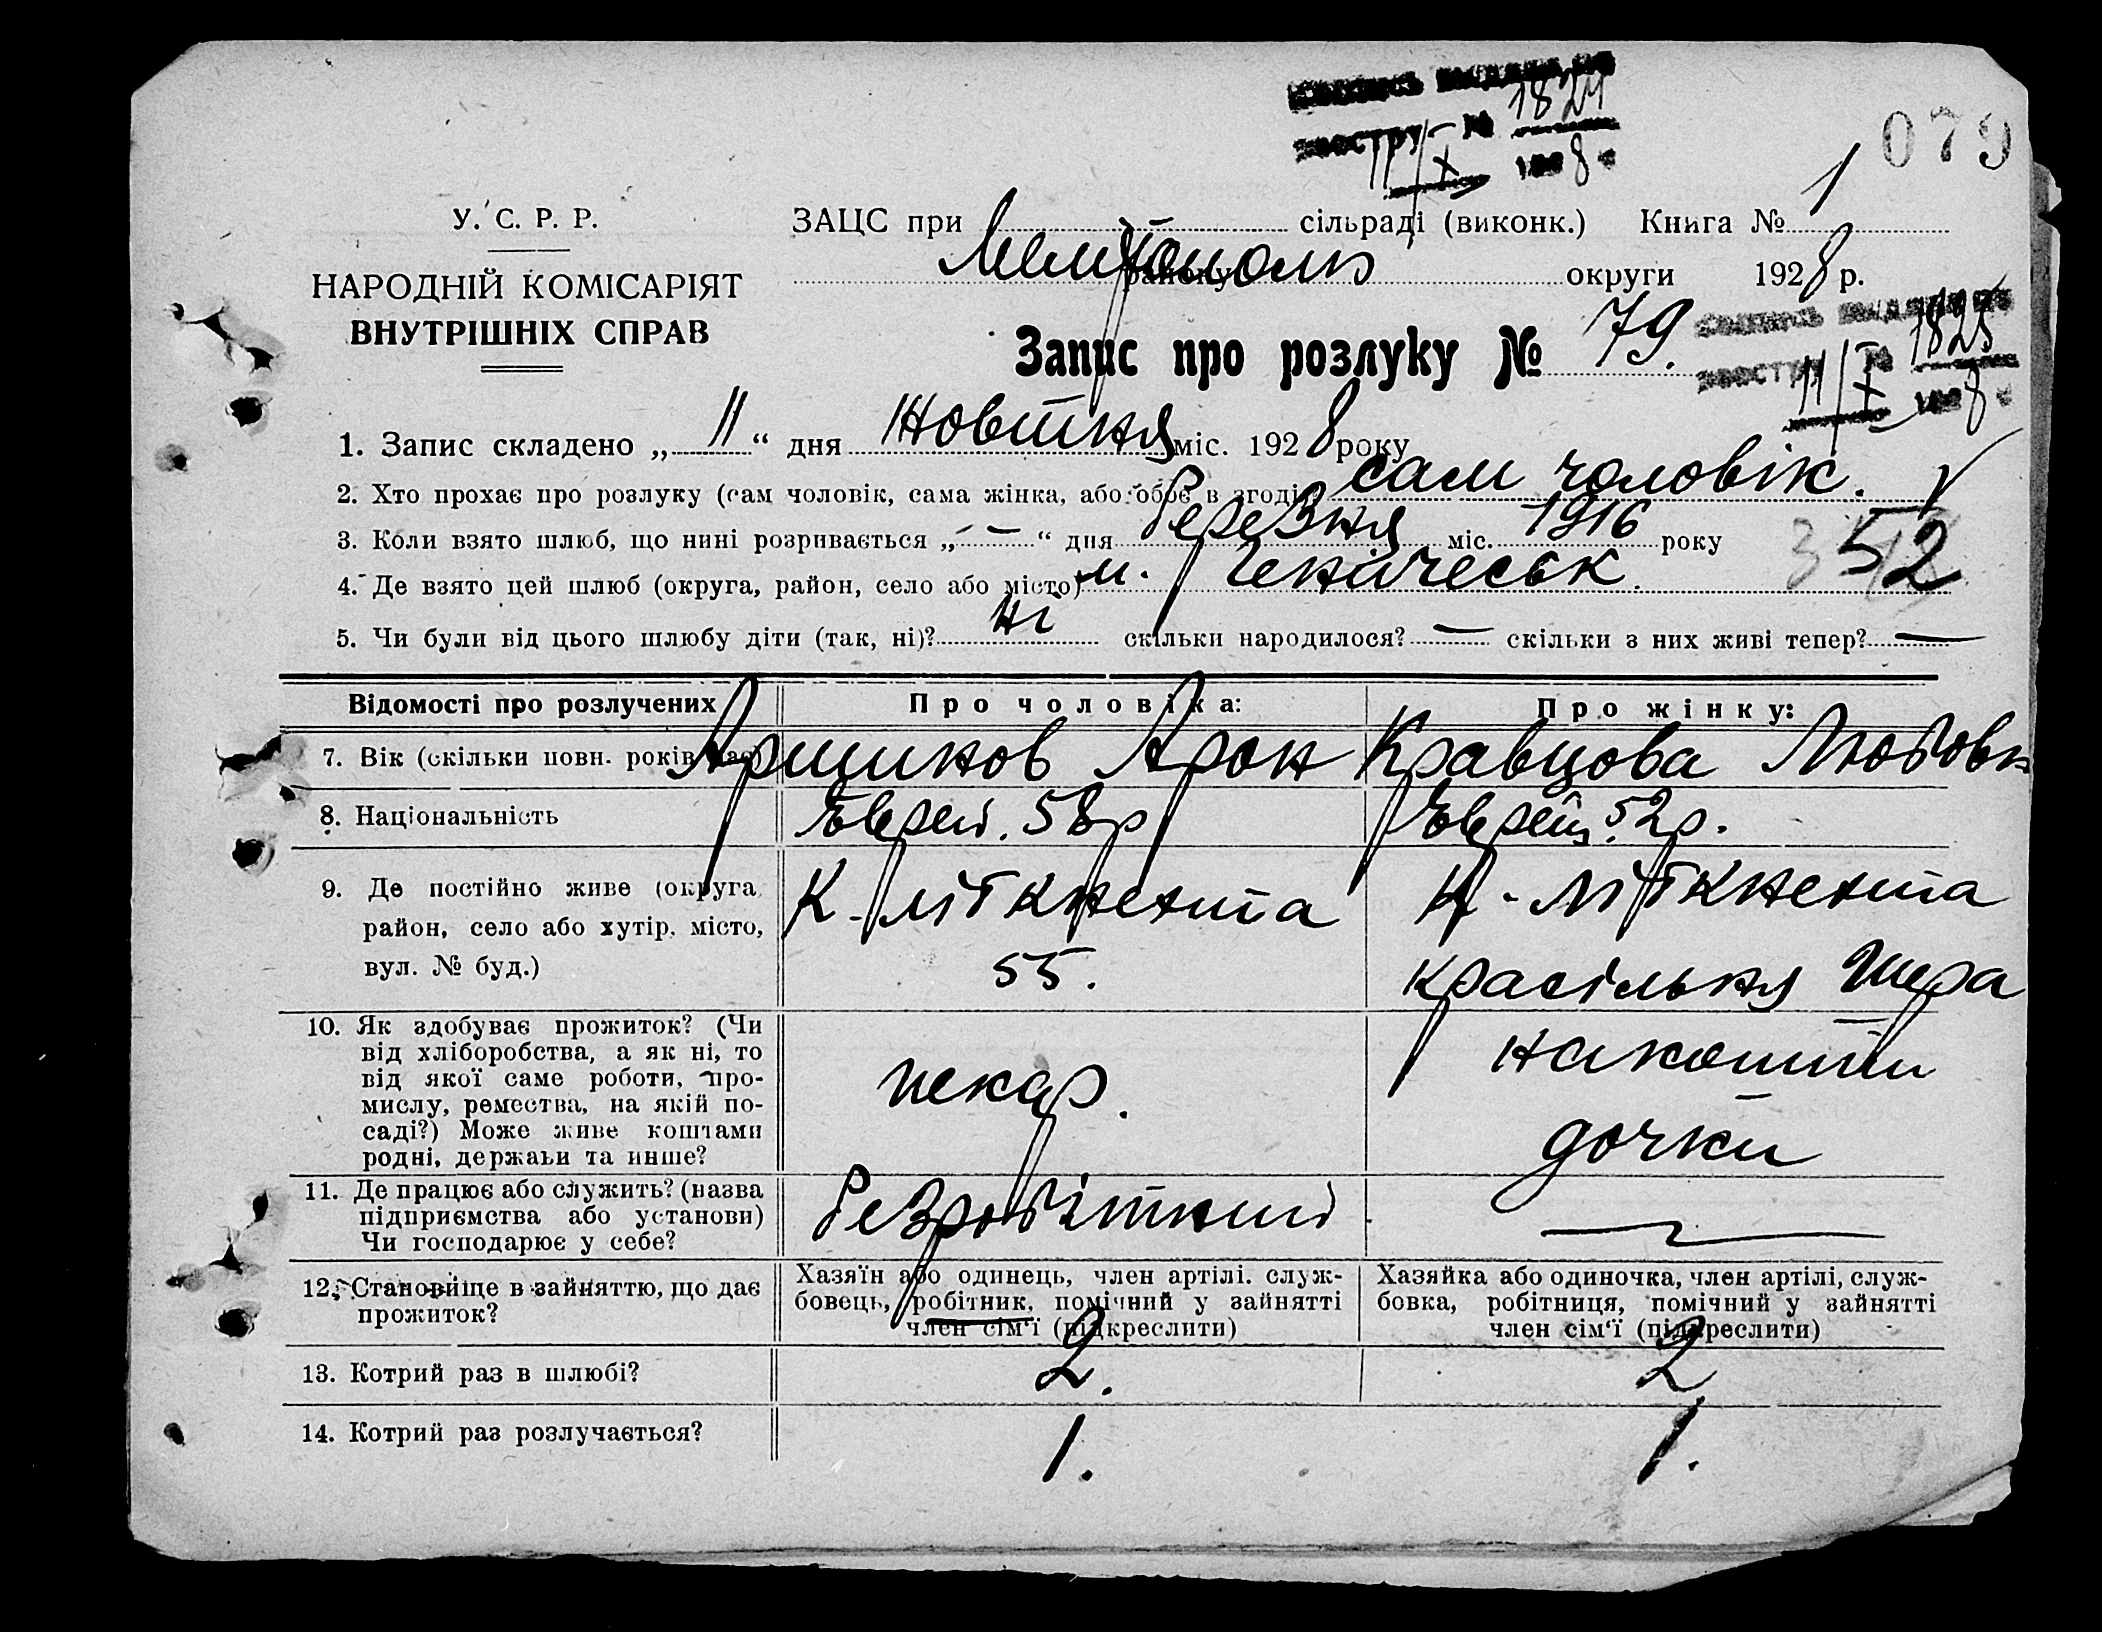 выдана
реестру № 1824
11/X 1928 г
079
У. С. Р. Р.
НАРОДНІЙ КОМІСАРІЯТ
ВНУТРІШНІХ СПРАВ
ЗАЦС при сільраді (виконк.) Книга № 1
Мелітополь району округи 1928 р.
Запис про розлуку № 79.
реестру № 1825
11/X 1928 г
1. Запис складено „ 11 “ дня Жовтня міс. 1928 року
2. Хто прохає про розлуку (сам чоловік, сама жінка, або обоє в згоді) сам чоловік.
3. Коли взято шлюб, що нині розривається „ — “ дня березня міс. 1916 року
52
4. Де взято цей шлюб (округа, район, село або місто) м. Генічеськ.
5. Чи були від цього шлюбу діти (так, ні)? ні скільки народилося? — скільки з них живі тепер? —
Відомості про розлучених Про чоловіка: Про жінку:
7. Вік (скільки повн. років має) Арщинов Арон Кравцова Любовь
8. Національність Єврей. 58р Єврей. 52р.
9. Де постійно живе (округа, район, село або хутір, місто, вул. № буд.)
К-Лібкнехта
55.
К-Лібкнехта
красільня Шера
10. Як здобуває прожиток? (Чи
від хліборобства, а як ні, то
від якої саме роботи, про-
мислу, ремества, на якій по-
саді?) Може живе коштами
родні, держави та инше?
пекар.
на кошти
дочки
11. Де працює або служить? (назва
підприємства або установи)
Чи господарює у себе?
безробітний
—
12. Становище в зайняттю, що дає
прожиток?
Хазяїн або одинець, член артілі. служ-
бовець, робітник, помічний у зайнятті
член сім'ї (підкреслити)
Хазяйка або одиночка, член артілі, служ-
бовка, робітниця, помічний у зайнятті
член сім'ї (підкреслити)
13. Котрий раз в шлюбі? 2. 2
14. Котрий раз розлучається? 1. 1.